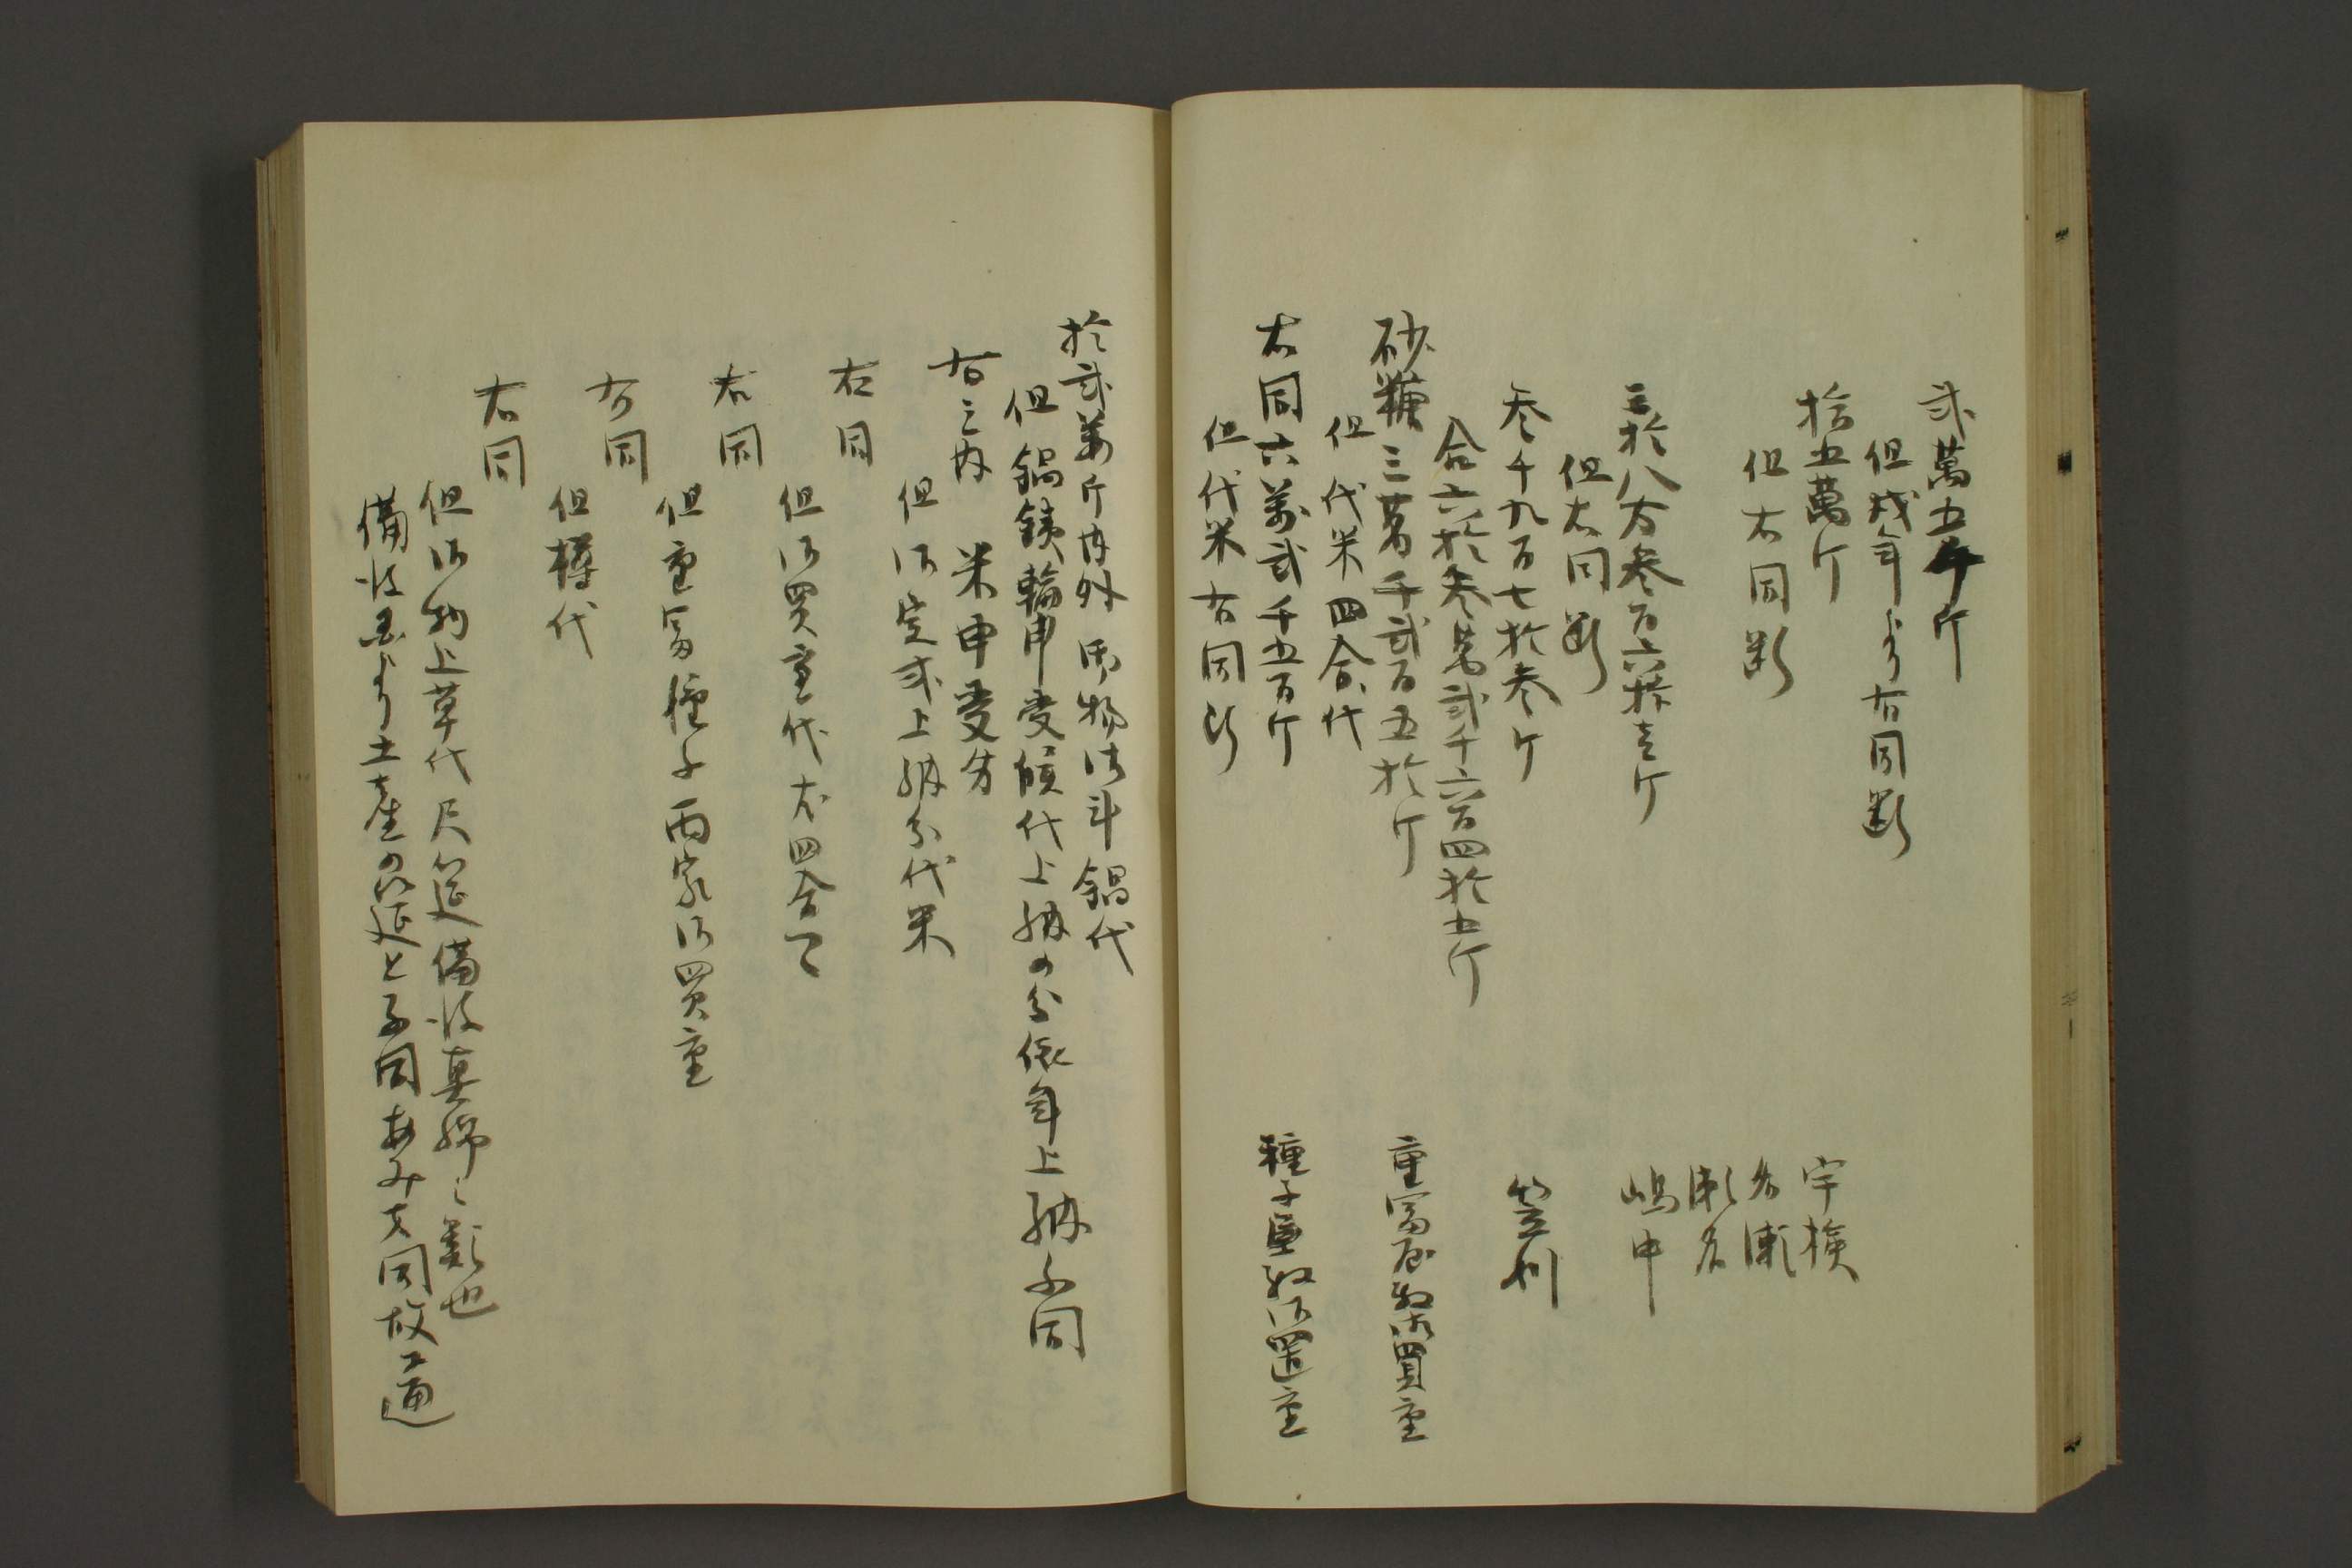 弐萬五千斤
但戌年ゟ右同断
拾五萬斤
宇検
但右同断
名瀬
瀬名
三拾八万参百六拾壱斤
嶋中
但右同断
参千九百七拾参斤
笠利
合六拾参萬弐千六百四拾五斤
砂糖三万千弐百五拾斤
重富殿御買重
但代米四合代
右同六萬弐千五百斤
種子島殿御買重
但代米右同断
拾弐万斤内外 御物御斗鍋代
但鍋銕輪申受候代上納の分依年上納不同
右之内 米申受分
但御定式上納分代米
右同
但御買重代右四合〆
右同
但重富種子両家御買重
右同
但樽代
右同
但御物上草代尺筵備後真綿之類也
備後国より土産の筵と者同あみ方同故通